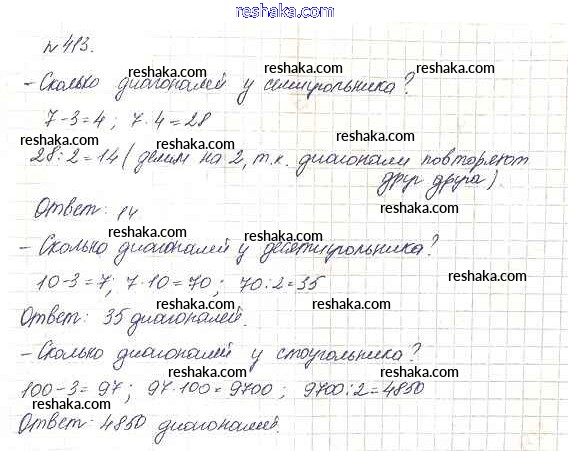 www.reshaka.com
№ 413. reshaka.com reshaka.com
- Сколько диагоналей у семиугольника?
reshaka.com reshaka.com
7-3=4; 7·4=28
reshaka.com reshaka.com reshaka.com
28:2=14 (делим на 2, т.к. диагонали повторяют
друг друга).
reshaka.com reshaka.com
Ответ: 14
reshaka.com reshaka.com
- Сколько диагоналей у десятиугольника?
10-3=7; 7·10=70; 70:2=35 reshaka.com
reshaka.com reshaka.com
Ответ: 35 диагоналей.
reshaka.com reshaka.com
- Сколько диагоналей у стоугольника?
reshaka.com reshaka.com
100-3=97; 97·100=9700; 9700:2=4850
reshaka.com reshaka.com
Ответ: 4850 диагоналей.
reshaka.com